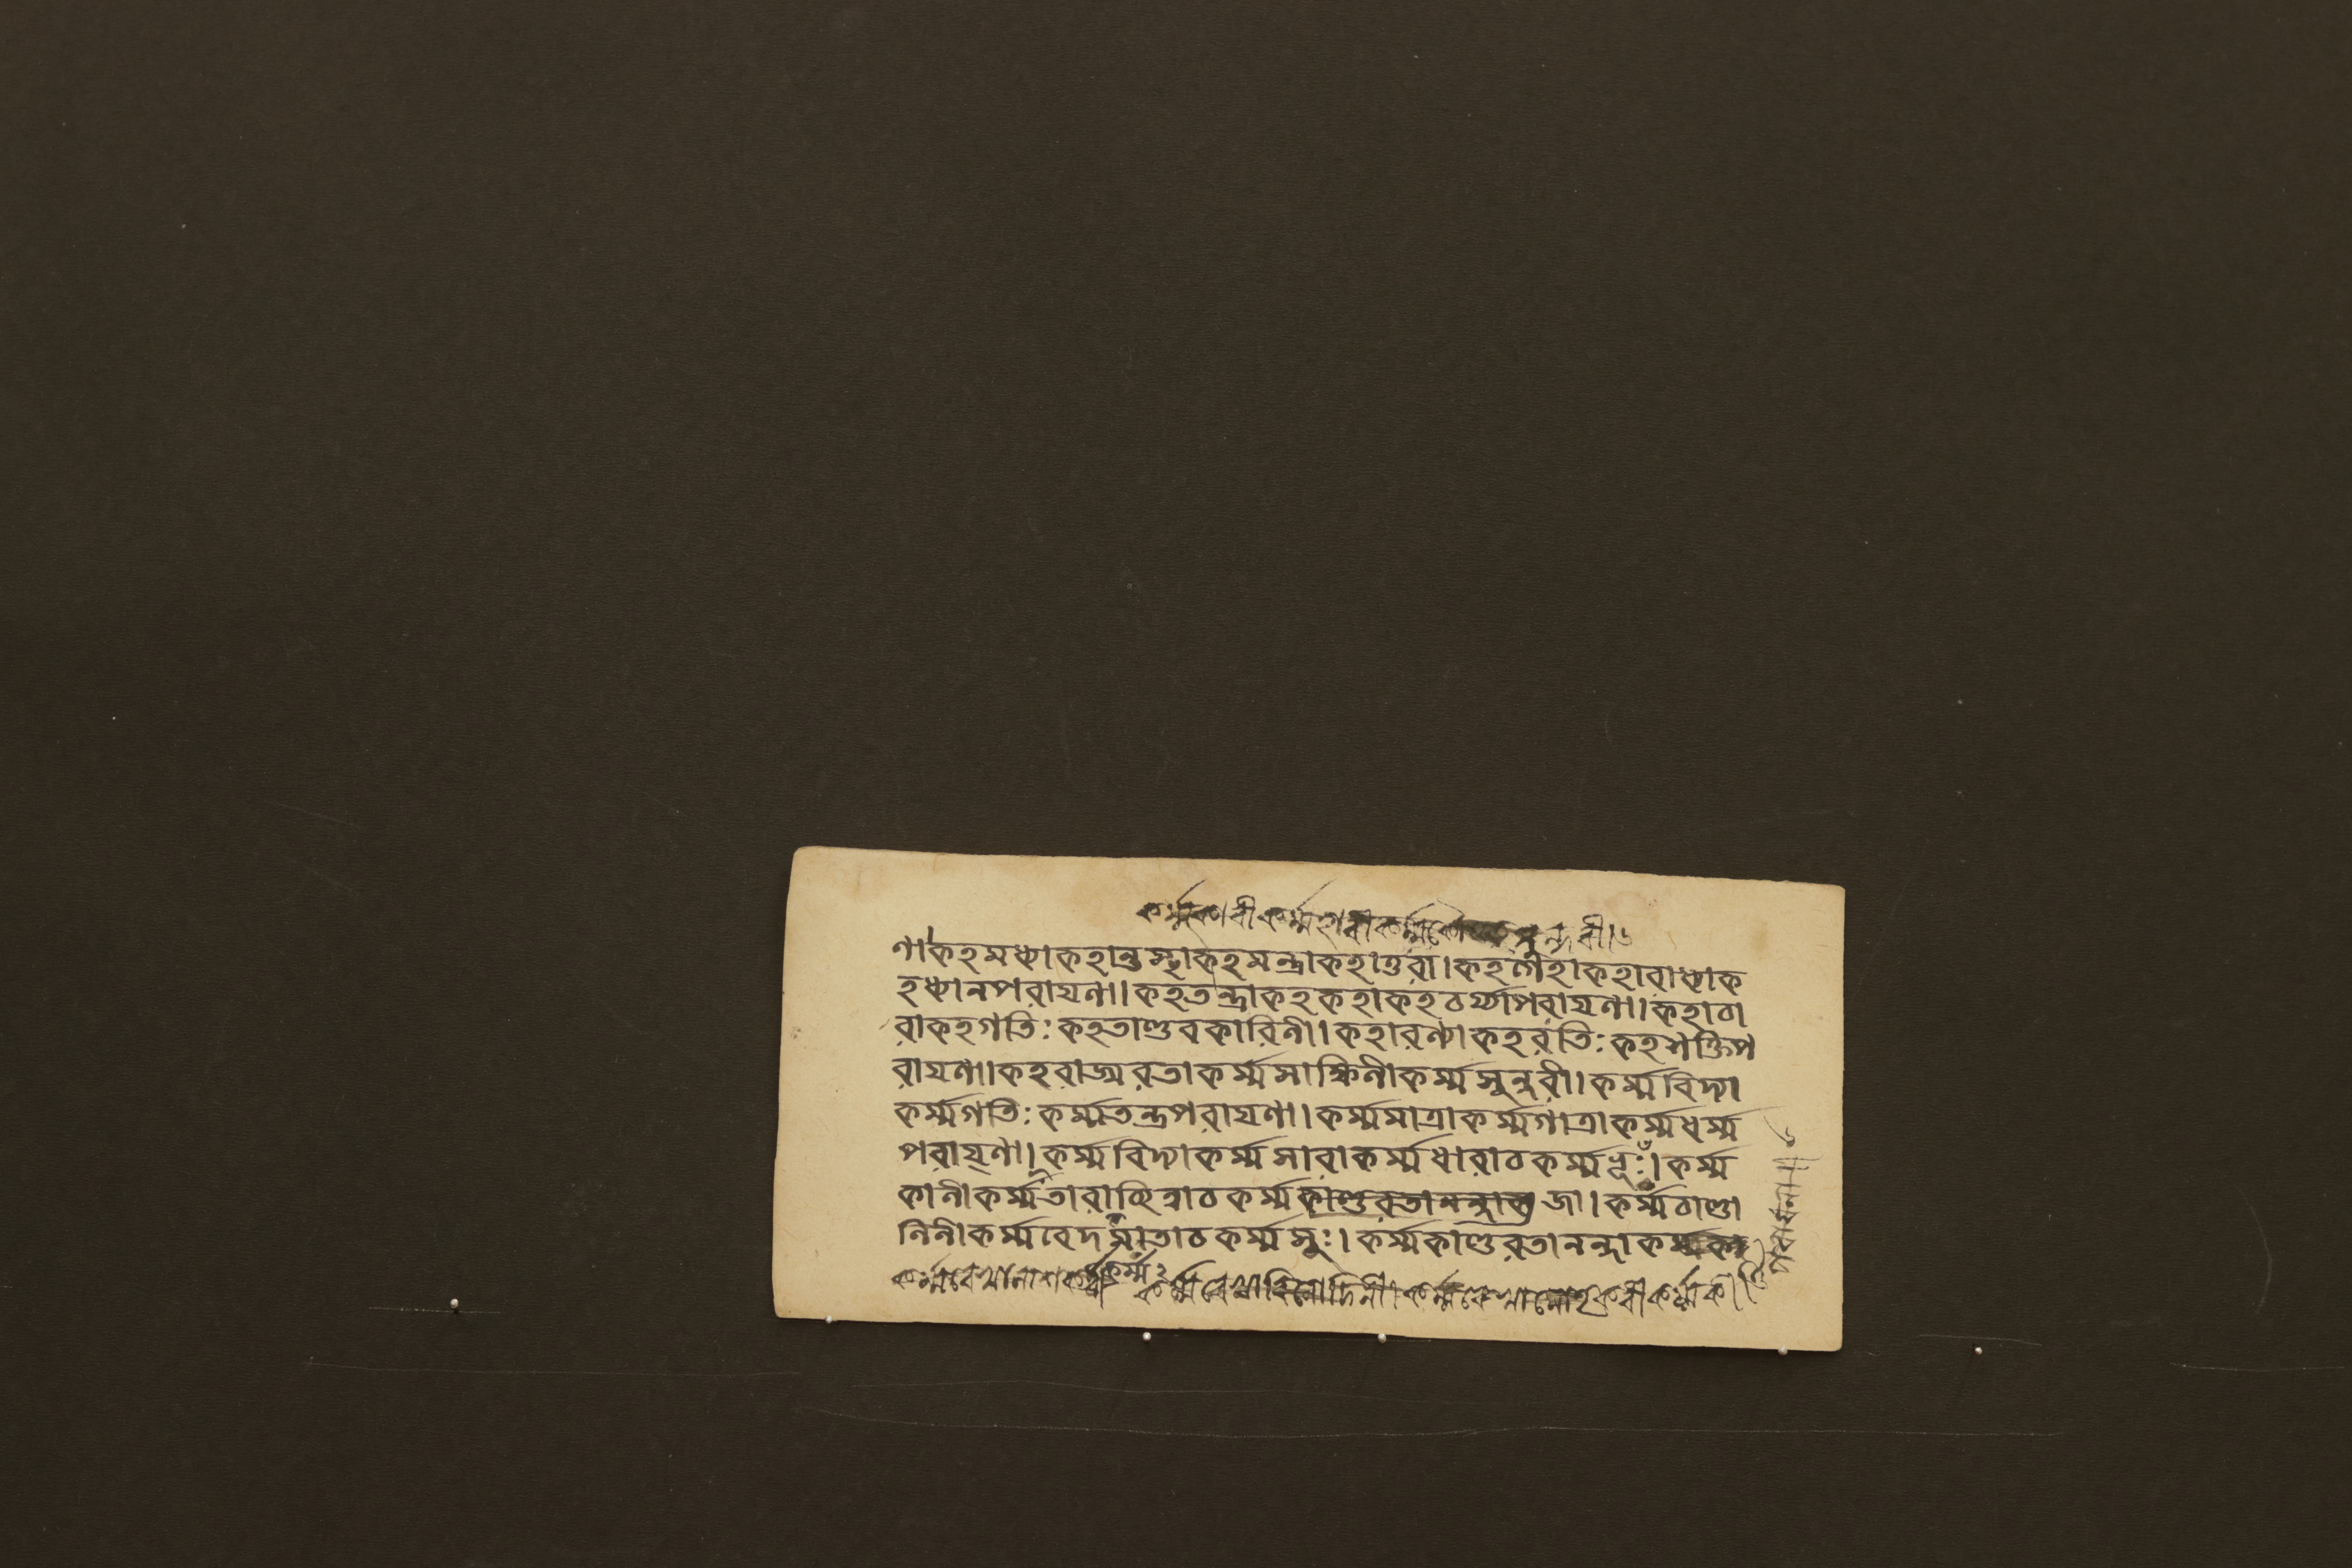 কর্ম্মকাবী কর্ম্মহাবী কর্ম্ম সুন্দবী।৬
ণা কহমধ্যা কহান্তস্থা কহমন্ত্রা কহাত্তুরা। কহগীহা কহারাধ্যা ক
হধ্যানপরায়ণা। কহতন্ত্রা কহকহা কহচর্য্যাপরায়ণা। কহাচা
রা কহগতিঃ কহতাণ্ডবকারিণী। কহারণ্যা কহরতিঃ কহশক্তিপ
রায়ণা। কহরাজ্যরতা কর্ম্মসাক্ষিণী কর্ম্মসুন্দরী। কর্ম্মবিদ্যা
কর্ম্মগতিঃ কর্ম্মতন্ত্রপরায়ণা। কর্ম্মমাত্রা কর্ম্মগাত্রা কর্ম্মধর্ম্ম
পরায়ণা। কর্ম্মবিদ্যা কর্ম্মসারা কর্ম্মধারা চ কর্ম্মভূঃ। কর্ম্ম
কানী কর্ম্মতারা চ কর্ম্মকাণ্ডরতানন্দা জা। কর্ম্মচাণ্ডা
নিনী কর্ম্মবেদমাতা চ কর্ম্মসুঃ। কর্ম্মকাণ্ডরতানন্দা
কর্ম্ম২
কর্ম্মরেখানাশকর্ত্রী কর্ম্মরেখাবিনোদিনী। কর্ম্মরেখামোহকরী কর্ম্মকী